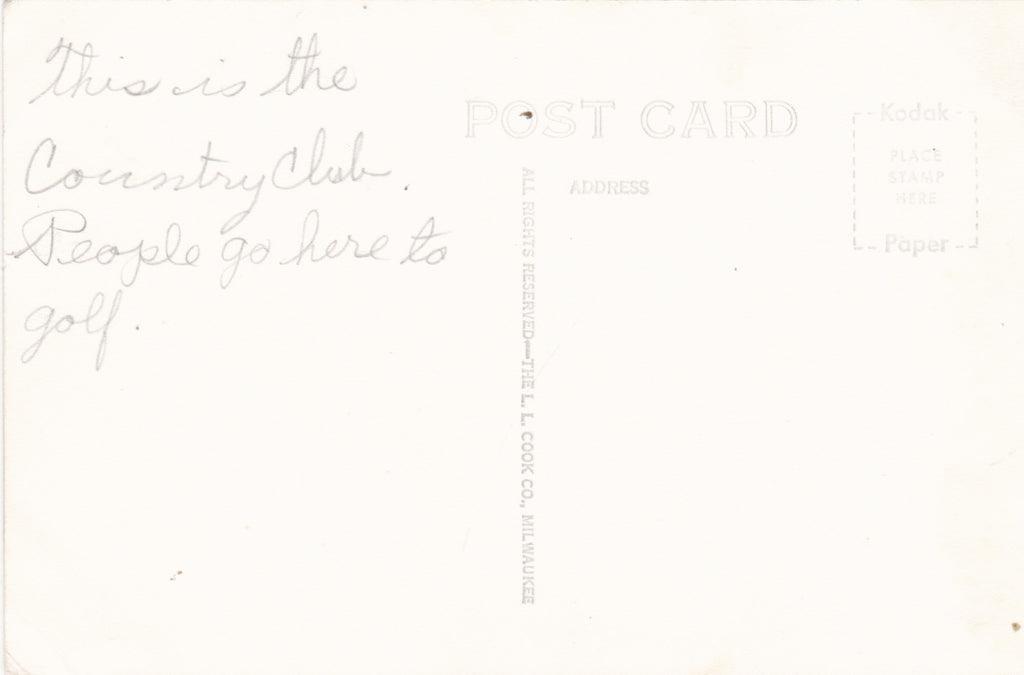 This is the
Country Club.
People go here to
golf.
POST CARD
ADDRESS
Kodak
PLACE
STAMP
HERE
Paper
ALL RIGHTS RESERVED—THE L. L. COOK CO., MILWAUKEE